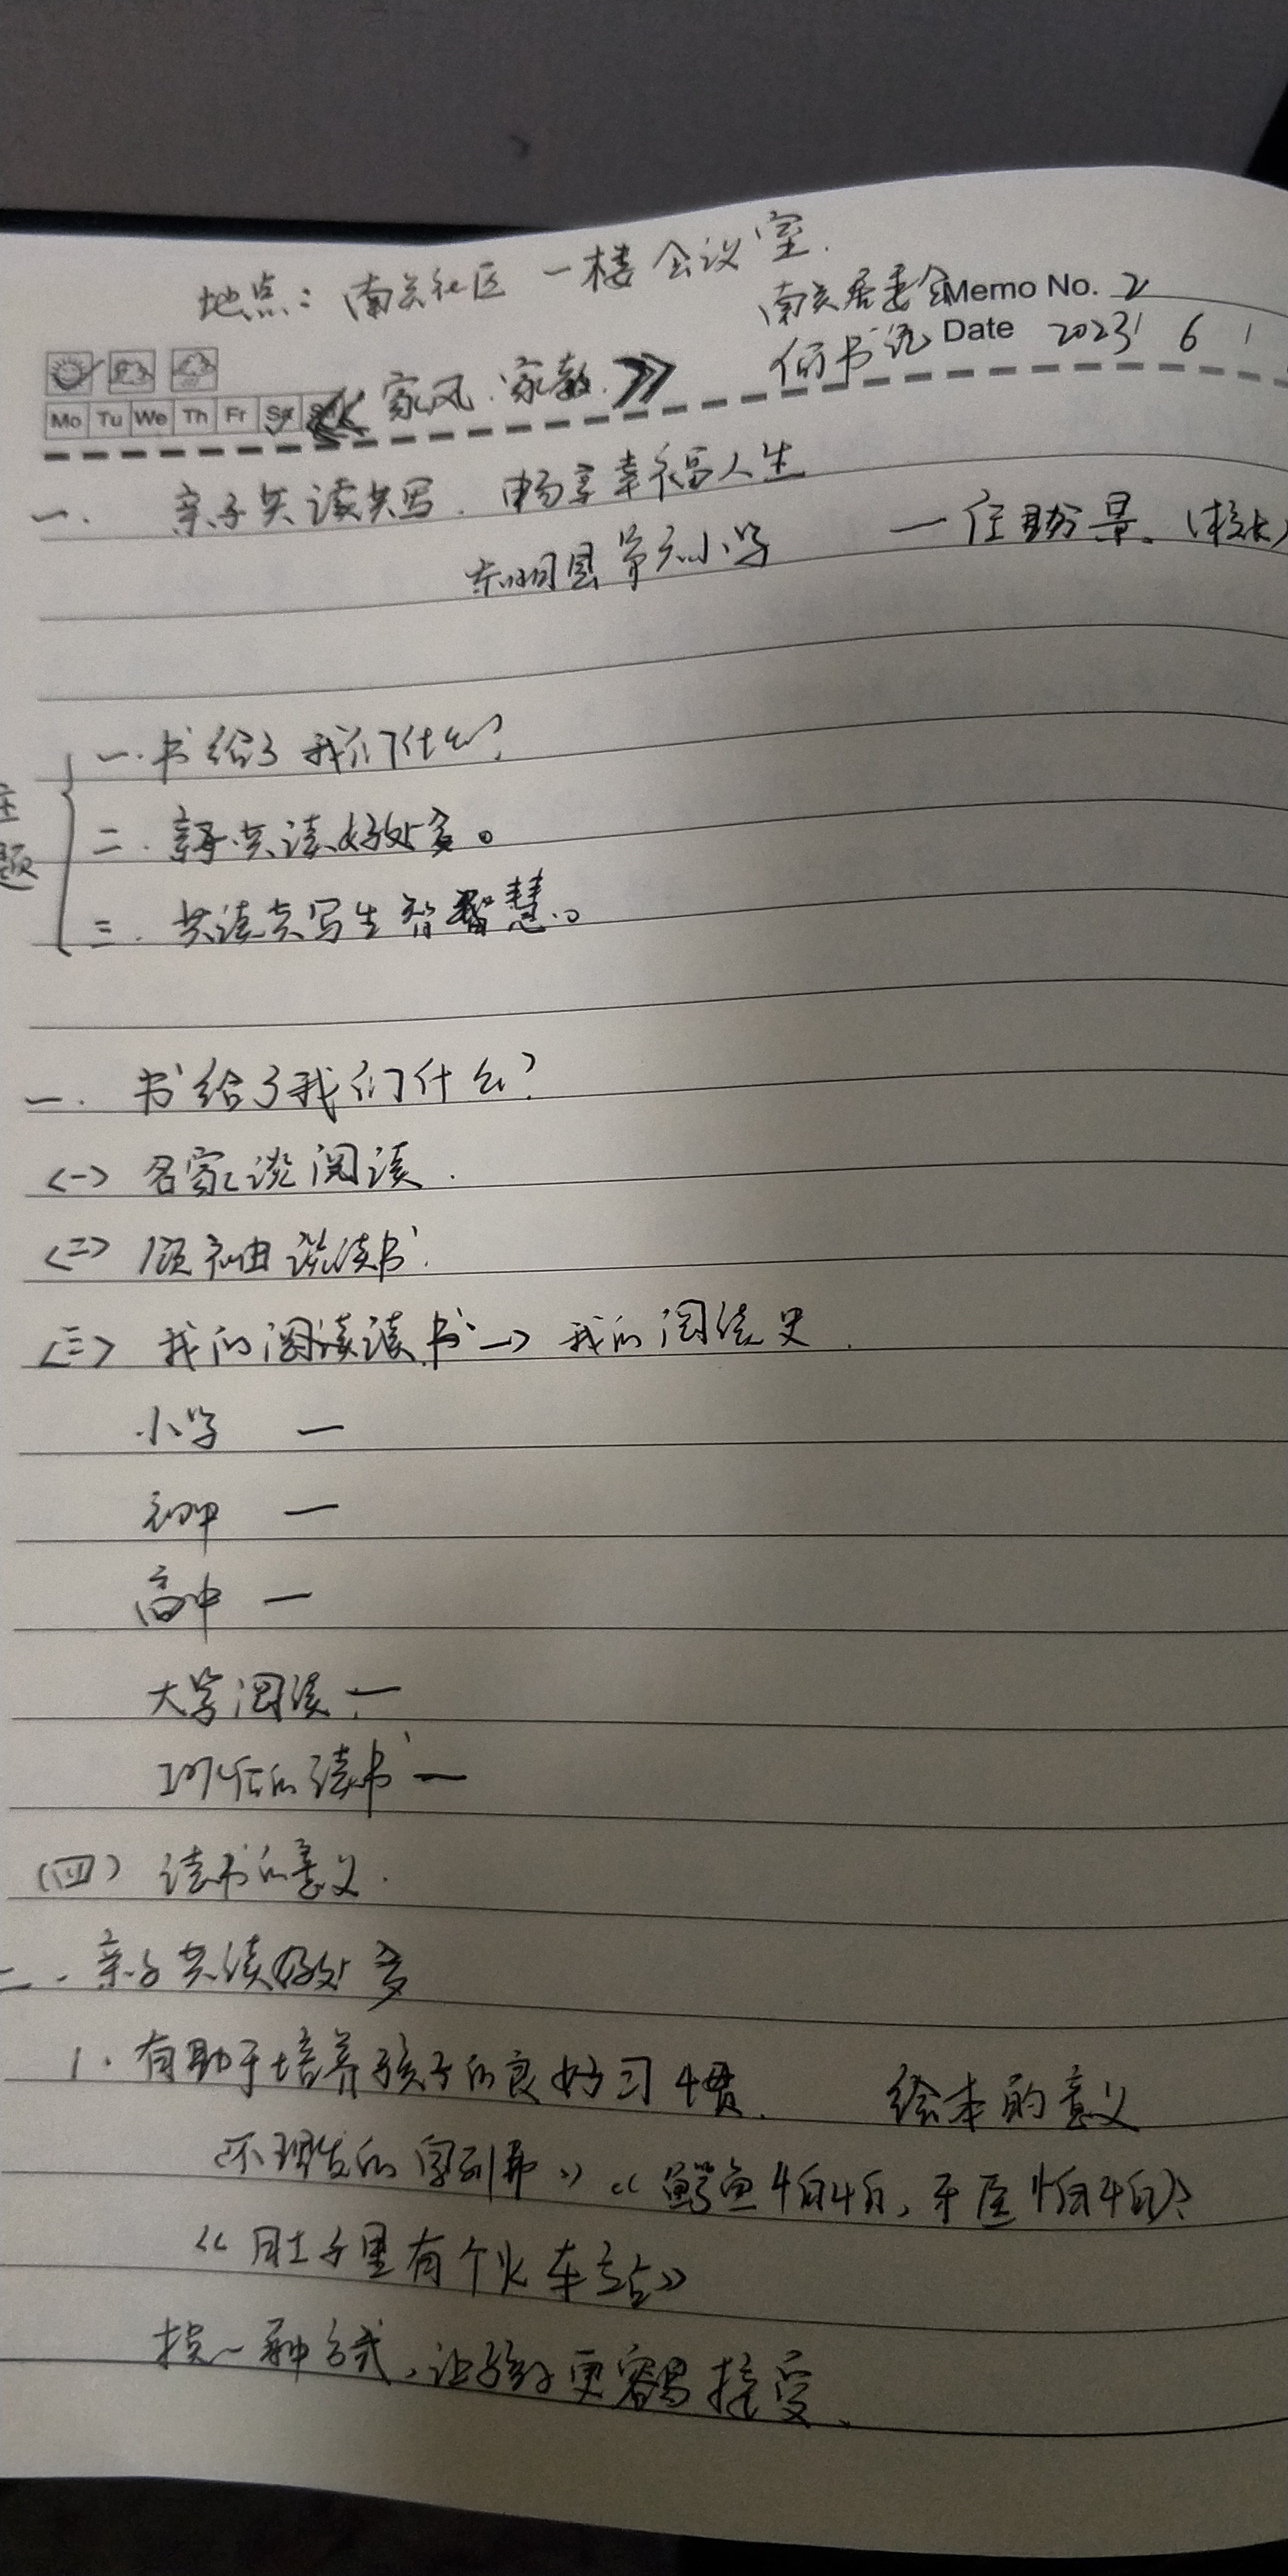 地点：南关社区 一楼会议室.
南关居委会 Memo No. 2
何书记 Date 2023 6 1
Mo Tu We Th Fr Sa
《家风.家教.》
一. 亲子共读共写.畅享幸福人生
东明县第六小学 —任盼景。(校长)
主题
一.书给了我们什么?
二.亲子共读好处多。
三.共读共写生智慧。
一.书给了我们什么?
<一>名家谈阅读.
<二>领袖说读书.
<三>我的阅读读书—>我的阅读史.
小学 一
初中 一
高中 一
大学阅读 一
工作后的读书 一
(四)读书的意义.
二.亲子共读好处多
1.有助于培养孩子的良好习惯. 绘本的意义
理发的 》《鳄鱼怕怕,牙医怕怕》
《肚子里有个火车站》
换一种方式,让孩子更容易接受.